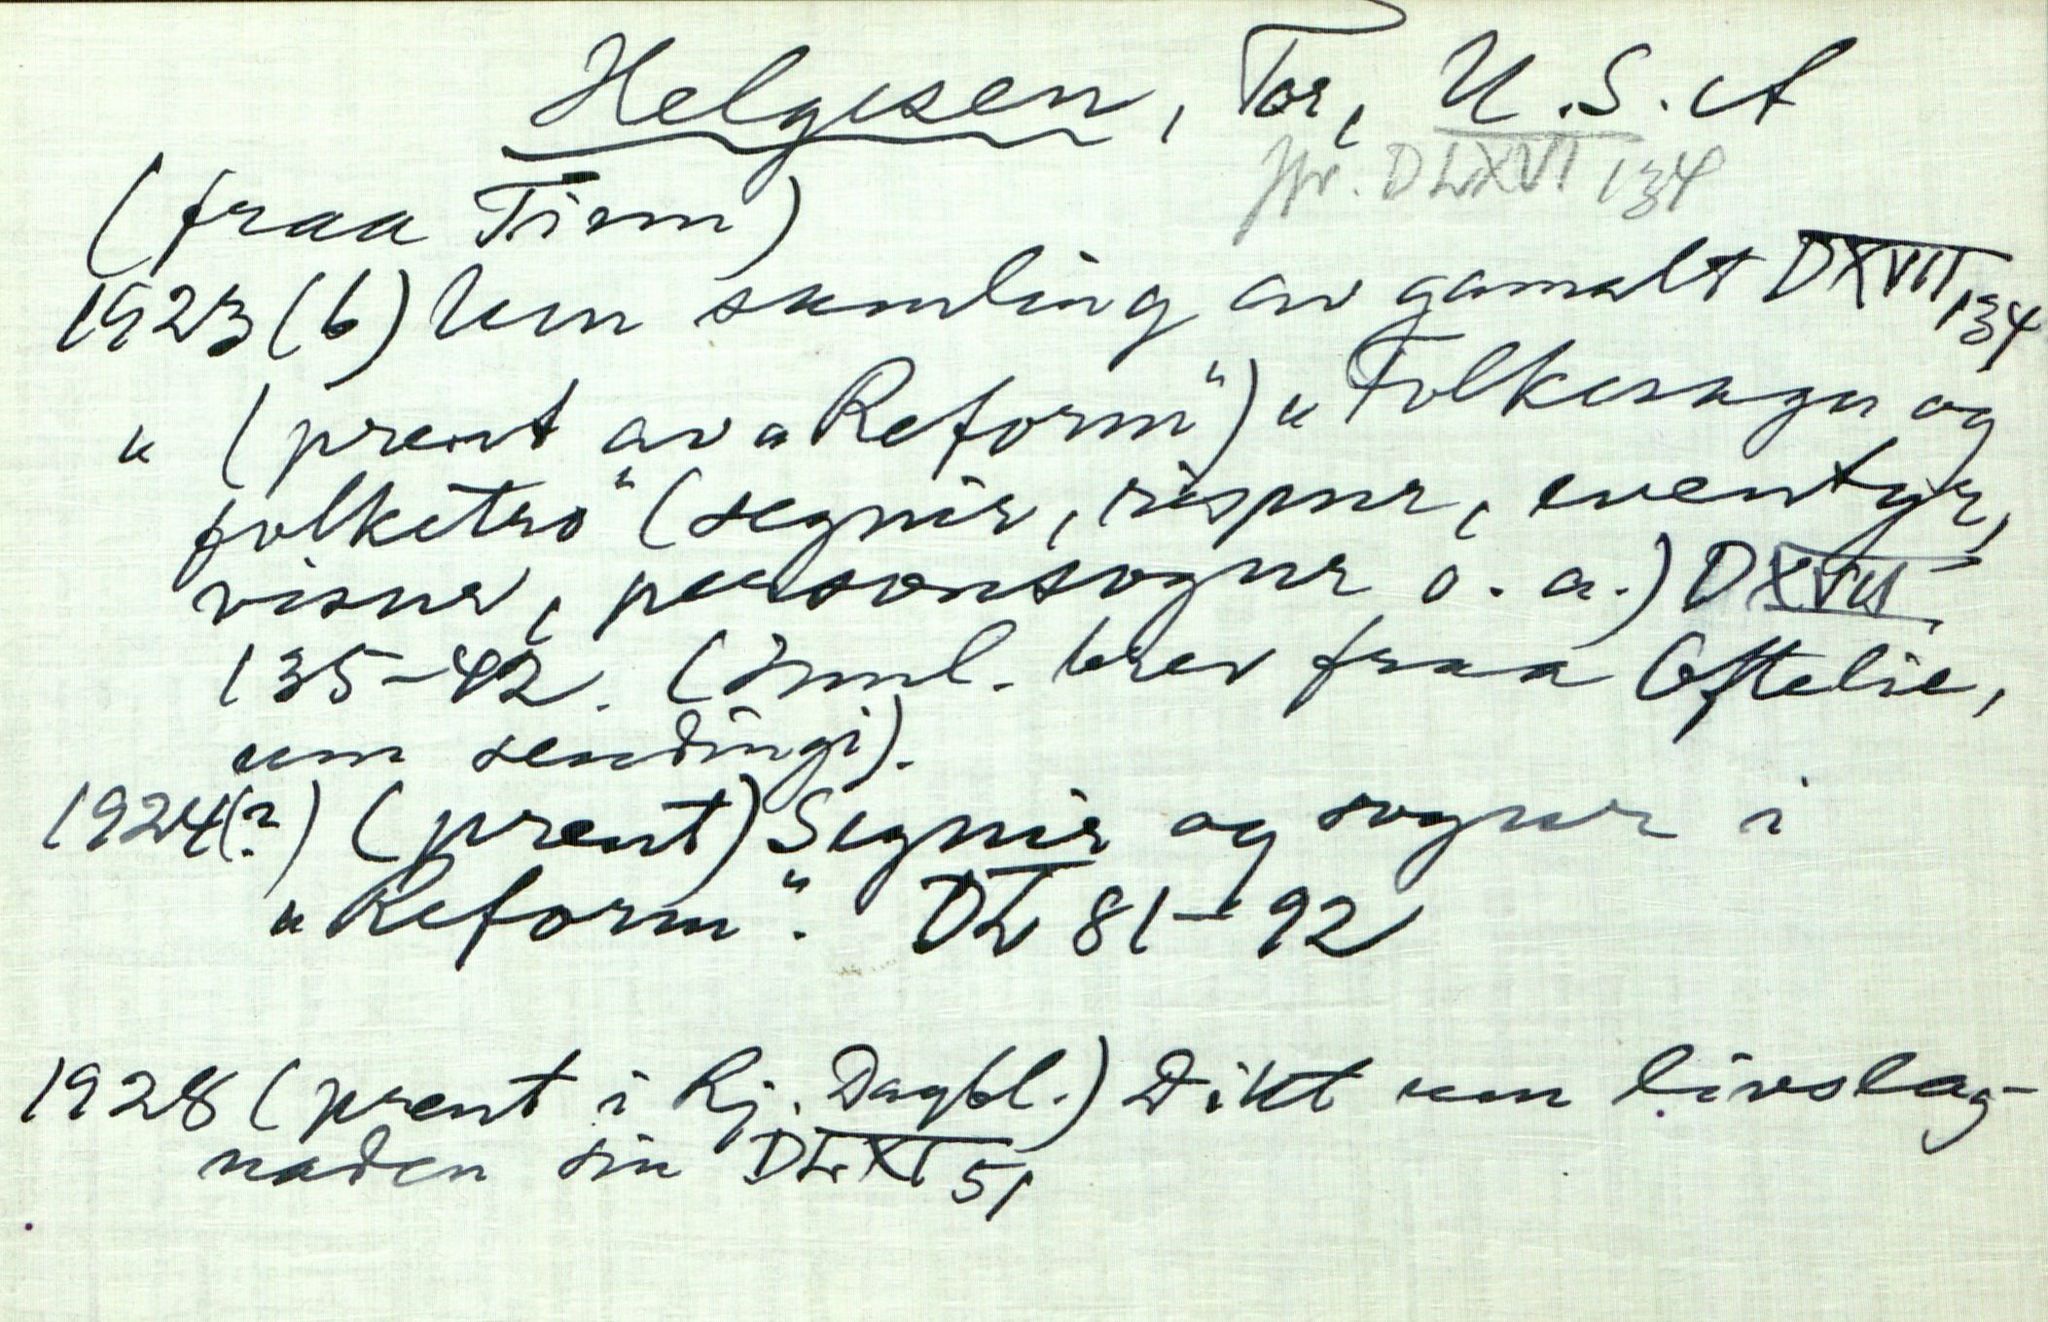 Helgesen, Tor, U.S.A
Jfr. DLXVI 134
(fraa Tinn)
1923 (b) Um samling av gamalt DXVII 134
" (prent av "Reform") "Folkesagn og
folketru" (segnir, rispur, eventyr,
visur, personsogur o.a.) DXVII
135-42. (Innl. brev fraa Oftelie,
um sendingi).
1924(?) (prent) Segnir og sogur i
"Reform". DL 81-92
1928 (prent i Rj. Dagbl.) Dikt um livslag-
naden sin DLXI 51